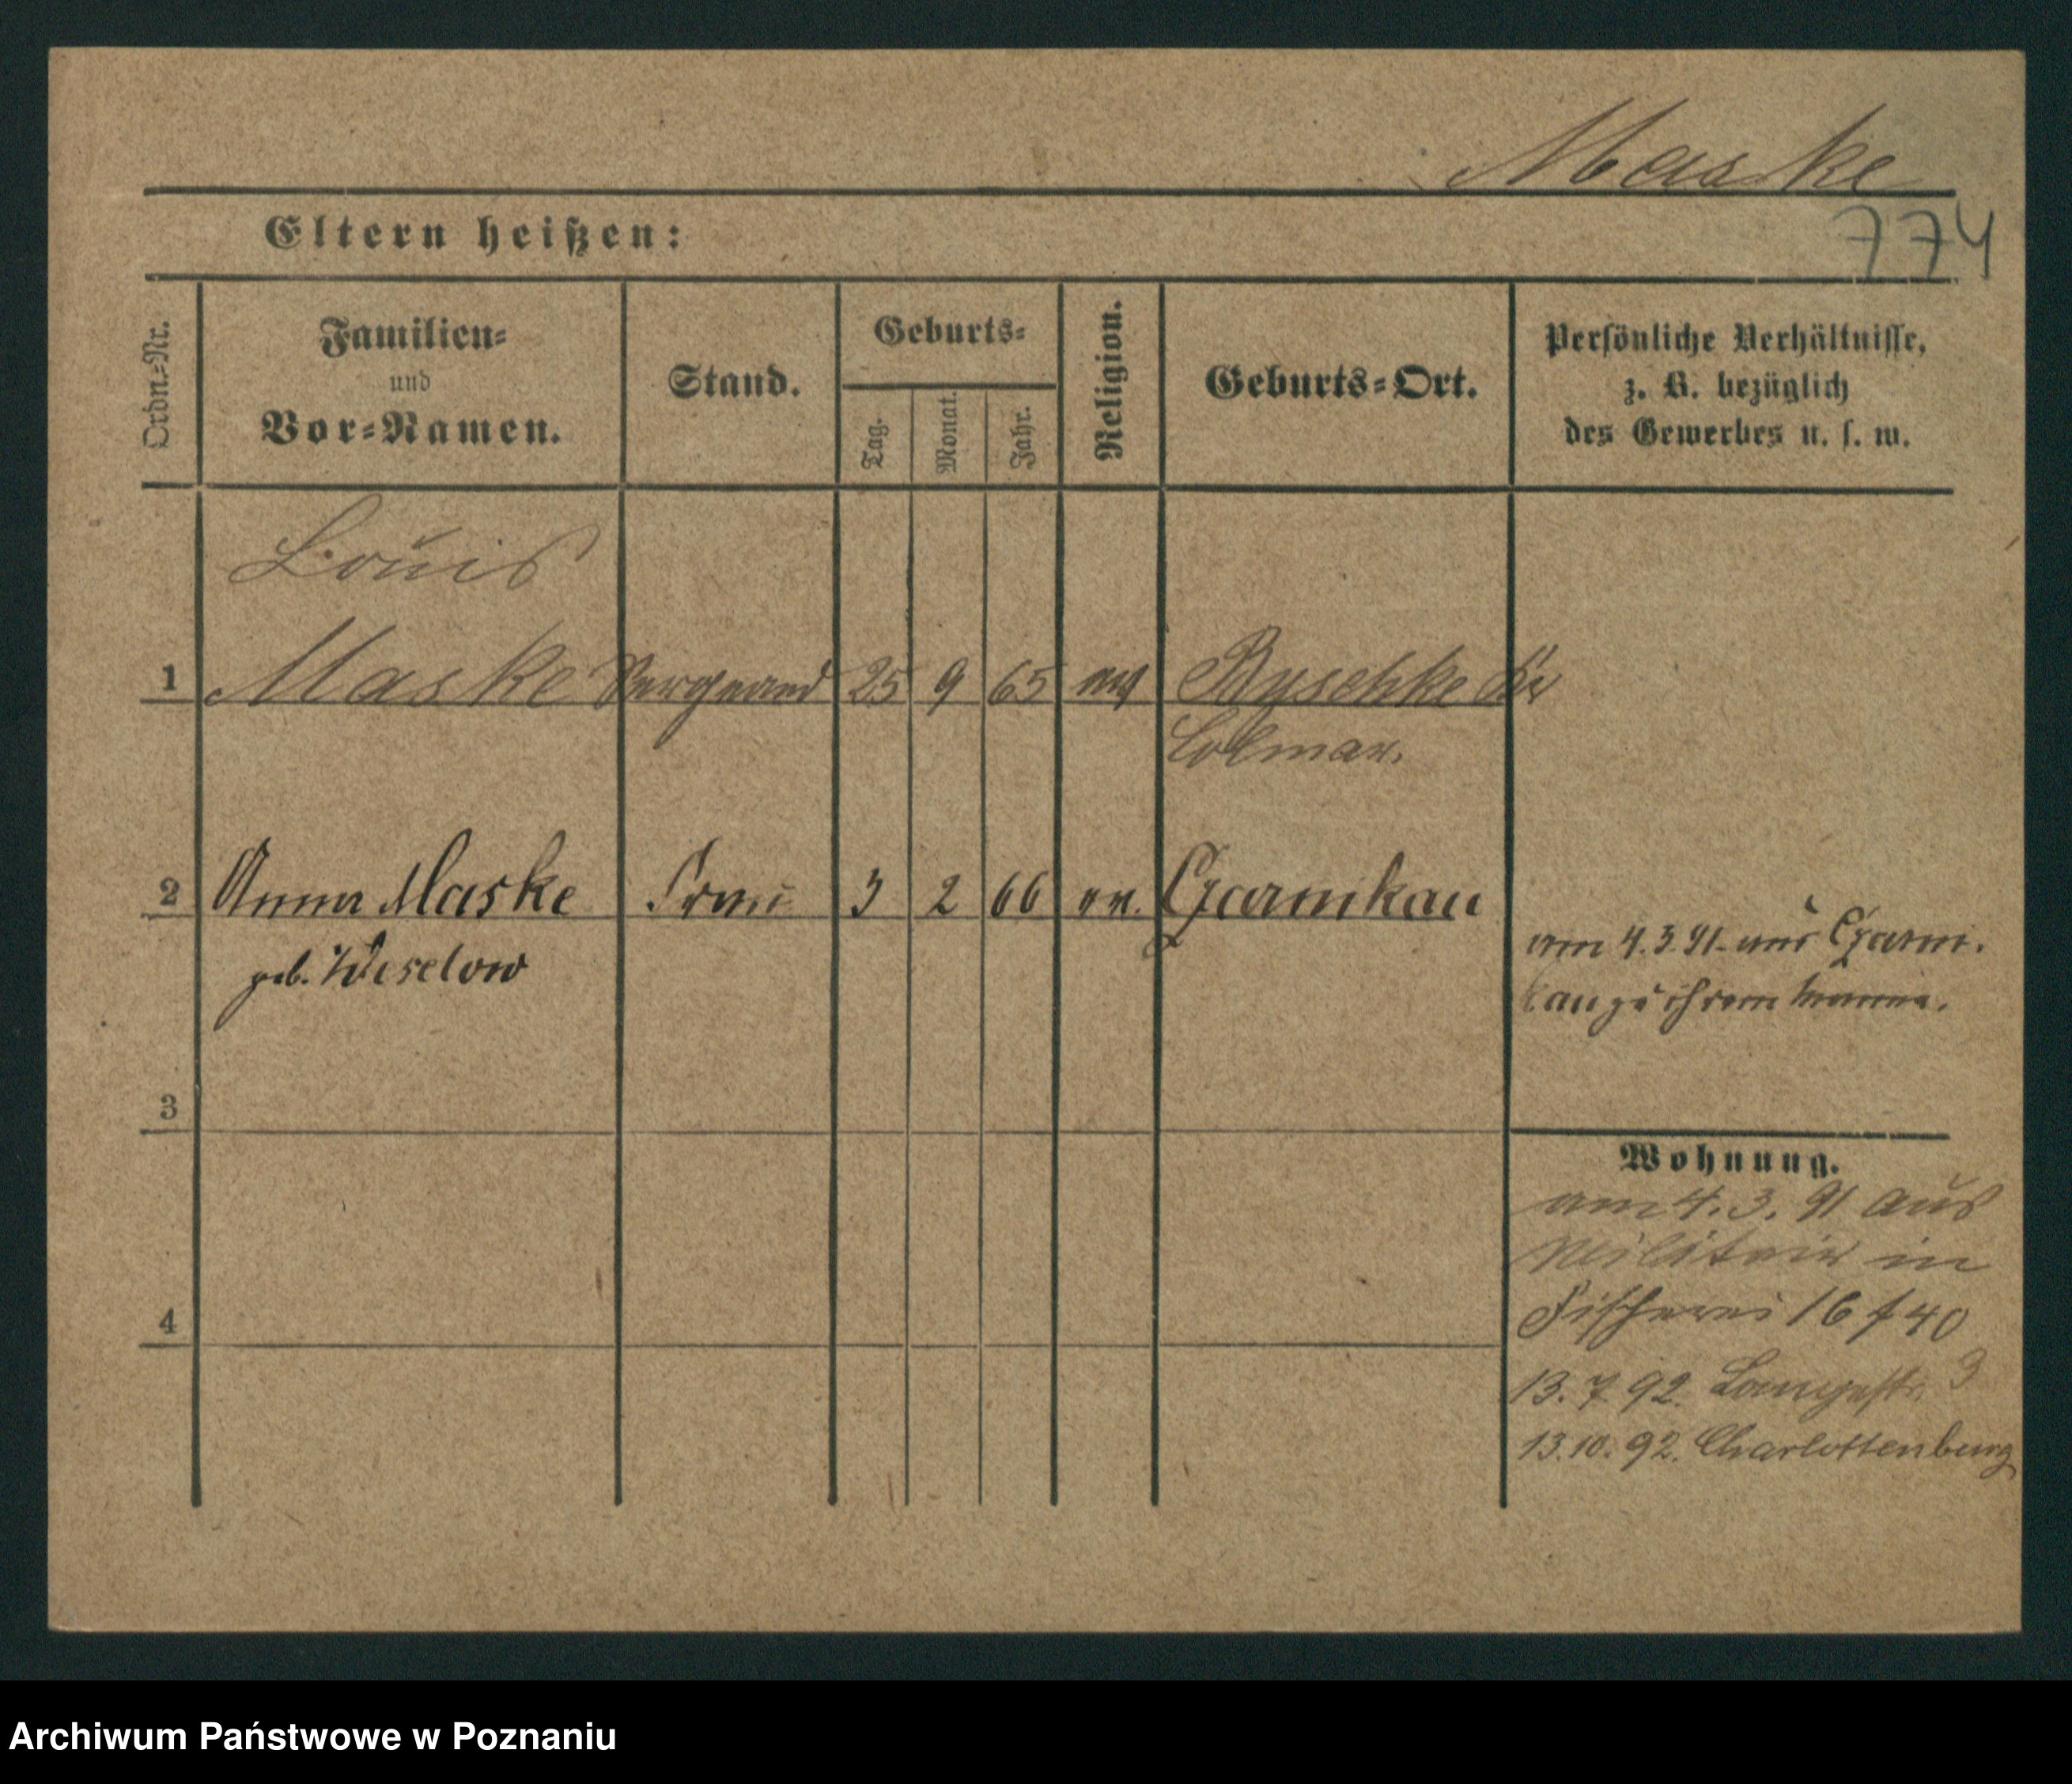 Maske
774
Eltern heißen:
Ordn.-Nr.
Familien-
und
Vor-Namen.
Stand.
Geburts-
Tag.
Monat.
Jahr.
Religion.
Geburts-Ort.
Persönliche Verhältnisse,
z. B. bezüglich
des Gewerbes u. s. w.
Louis
1 Maske Sergeand 25 9 65 ev Buschke Kr
Colmar.
2 Anna Maske Frau 3 2 66 ev. Czarnikau
geb. Weselow
am 4.3.91. aus Czarni-
kau zu ihrem Manne.
3
Wohnung.
am 4. 3. 91 aus
Militair in
Fischerei 16 f 40
4
13. 7. 92. Langestr. 3
13. 10. 92. Charlottenburg
Archiwum Państwowe w Poznaniu